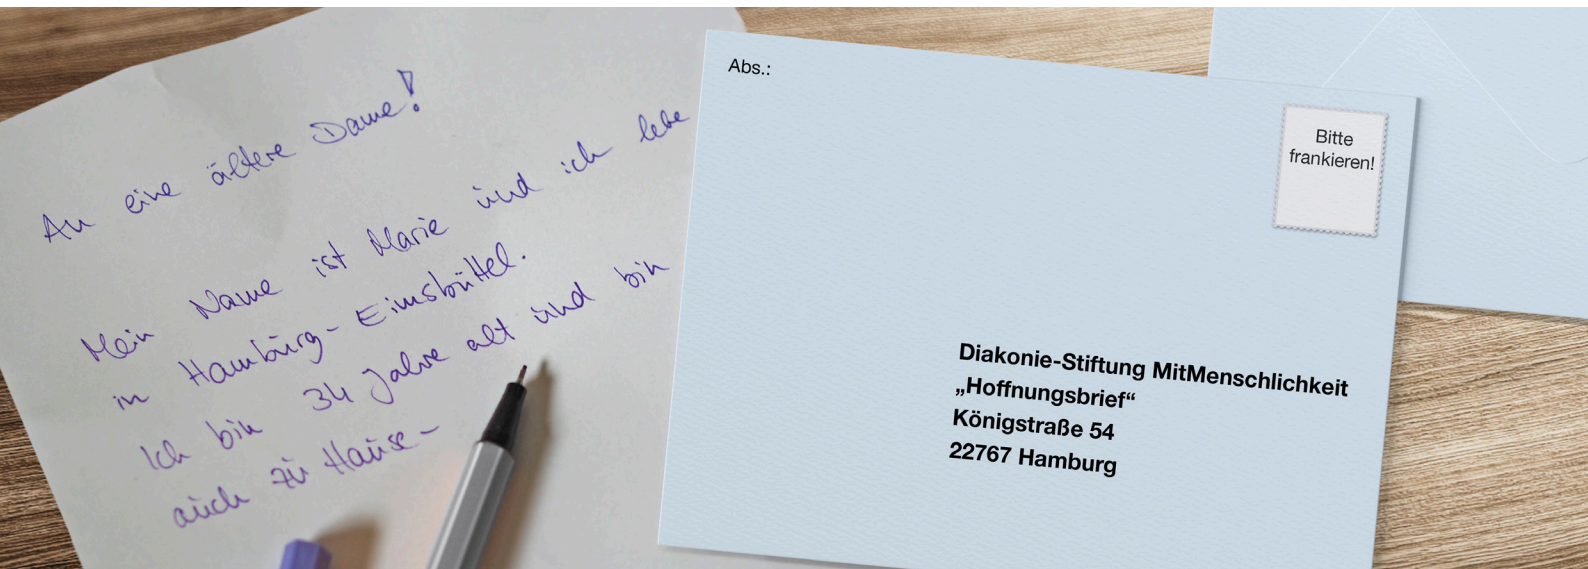 An eine ältere Dame!
Mein Name ist Marie und ich lebe
in Hamburg-Eimsbüttel.
Ich bin 34 Jahre alt und bin
auch zu Hause-
Abs.:
Bitte
frankieren!
Diakonie-Stiftung MitMenschlichkeit
„Hoffnungsbrief“
Königstraße 54
22767 Hamburg